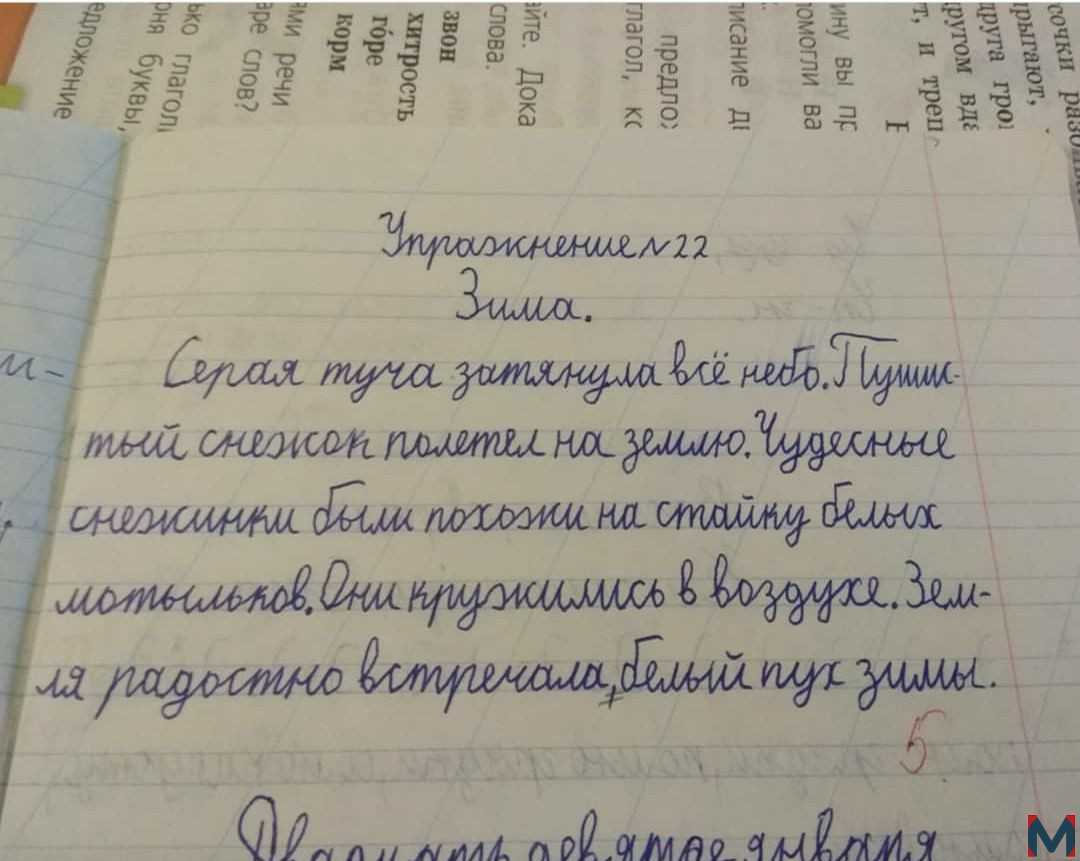 сочки
прыгают,
друга
другом вд
т, и треп
ину вы пр
помогли ва
писание д
предло
глагол, к
айте. Дока
слова.
звон
хитрость
го́ре
корм
ами речи
аре слов?
ько глагол
оня буквы,
едложение
Упражнение №22
Зима.
Серая туча затянула всё небо. Пушис-
тый снежок полетел на землю. Чудесные
снежинки были похожи на стайку белых
мотыльков. Они кружились в воздухе. Зем-
ля радостно встречала, белый пух зимы.
5
Двадцать девятое января
и-
M